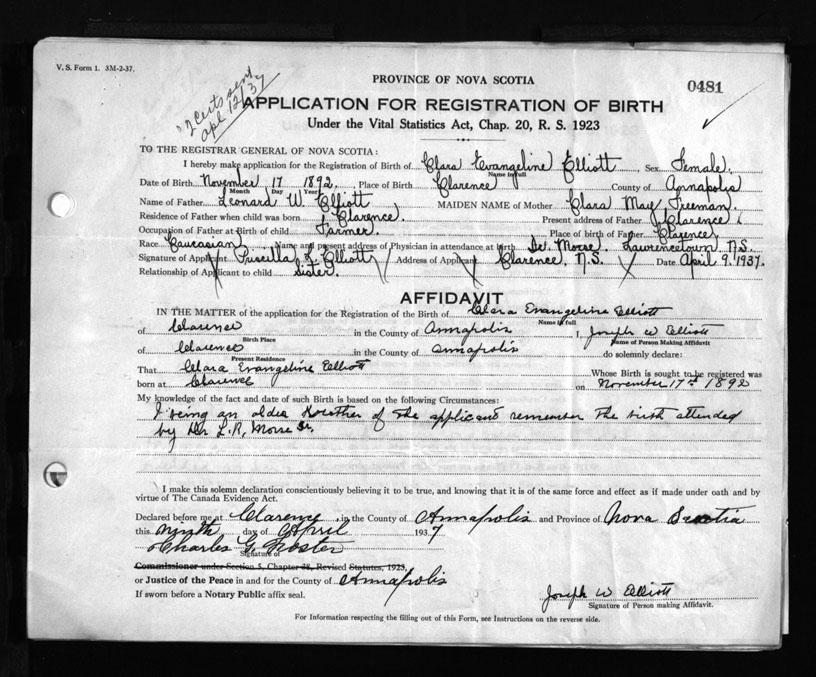 V. S. Form 1. 3M-2-37.
PROVINCE OF NOVA SCOTIA
0481
2 certs sent
apl 12/37
APPLICATION FOR REGISTRATION OF BIRTH
Under the Vital Statistics Act, Chap. 20, R. S. 1923
TO THE REGISTRAR GENERAL OF NOVA SCOTIA:
I hereby make application for the Registration of Birth of Clara Evangeline Elliott Sex Female.
Name in full
Date of Birth November 17 1892. Place of Birth Clarence County of Annapolis
Month Day Year
Name of Father Leonard W. Elliott MAIDEN NAME of Mother Clara May Freeman.
Residence of Father when child was born Clarence. Present address of Father Clarence.
Occupation of Father at Birth of child Farmer. Place of birth of Father Clarence.
Race Caucasian Name and present address of Physician in attendance at birth Dr. Morse. Lawrencetown N.S.
Signature of Applicant Priscilla L. Elliott Address of Applicant Clarence, N.S. Date April 9. 1937.
Relationship of Applicant to child Sister.
AFFIDAVIT
IN THE MATTER of the application for the Registration of the Birth of Clara Evangeline Elliott
Name in full
of Clarence in the County of Annapolis I, Joseph W Elliott
Birth Place Name of Person Making Affidavit
of Clarence in the County of Annapolis do solemnly declare:
Present Residence
That Clara Evangeline Elliott Whose Birth is sought to be registered was
born at Clarence on November 17th 1892
My knowledge of the fact and date of such Birth is based on the following Circumstances:
I being an older brother of the applicant remember the birth attended
by Dr L.R. Morse Sr.
I make this solemn declaration conscientiously believing it to be true, and knowing that it is of the same force and effect as if made under oath and by
virtue of The Canada Evidence Act.
Declared before me at Clarence in the County of Annapolis and Province of Nova Scotia
this ninth day of April 1937
Charles G. Foster
Signature of
Commissioner under Section 5, Chapter 38, Revised Statutes, 1923,
or Justice of the Peace in and for the County of Annapolis
If sworn before a Notary Public affix seal.
Joseph W Elliott
Signature of Person making Affidavit.
For Information respecting the filling out of this Form, see Instructions on the reverse side.